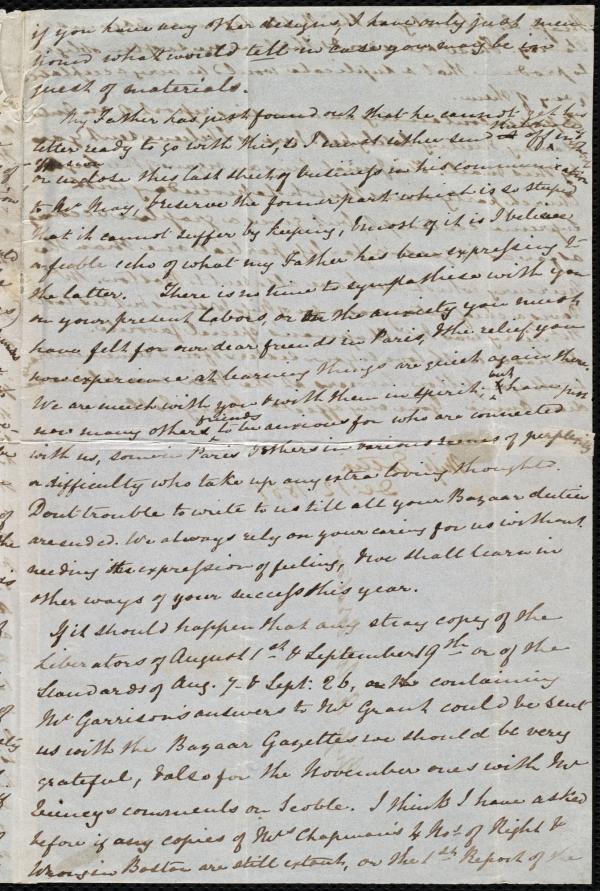 if you have any other designs, I have only just men-
tioned what would tell in case you may be in
quest of materials.
My Father has just found out that he cannot get his
letter ready to go with this, so I must either send it off in
or enclose this last sheet of business in his communication
to Mr May, & reserve the former part which is so stupid
that it cannot suffer by keeping, & most of it is I believe
a feeble echo of what my Father has been expressing in
the latter. There is no time to sympathise with you
on your present labors, or the anxiety you must
have felt for our dear friends in Paris, & the relief you
now experience at learning things are quiet again there.
We are much with you & with them in spirit, but have just
now many other friends to be anxious for who are connected
with us, some in Paris & others in various scenes of perplexity
or difficulty who take up any extra loving thought.
Dont trouble to write to us till all your Bazaar duties
are ended. We always rely on your caring for us without
needing the expression of feeling, & we shall learn in
other ways of your success this year.
If it should happen that any stray copy of the
Liberators of August 1st & September 19th or of the
Standards of Aug. 7 & Sept. 26, containing
Mr Garrison's answers to Mr Grant could be sent
us with the Bazaar Gazettes we should be very
grateful, & also for the November ones with Mr
Quincys comments on Scoble. I think I have asked
before if any copies of Mrs Chapman's 4 Nos. of Right &
Wrong in Boston are still extant, or the 1st Report of the